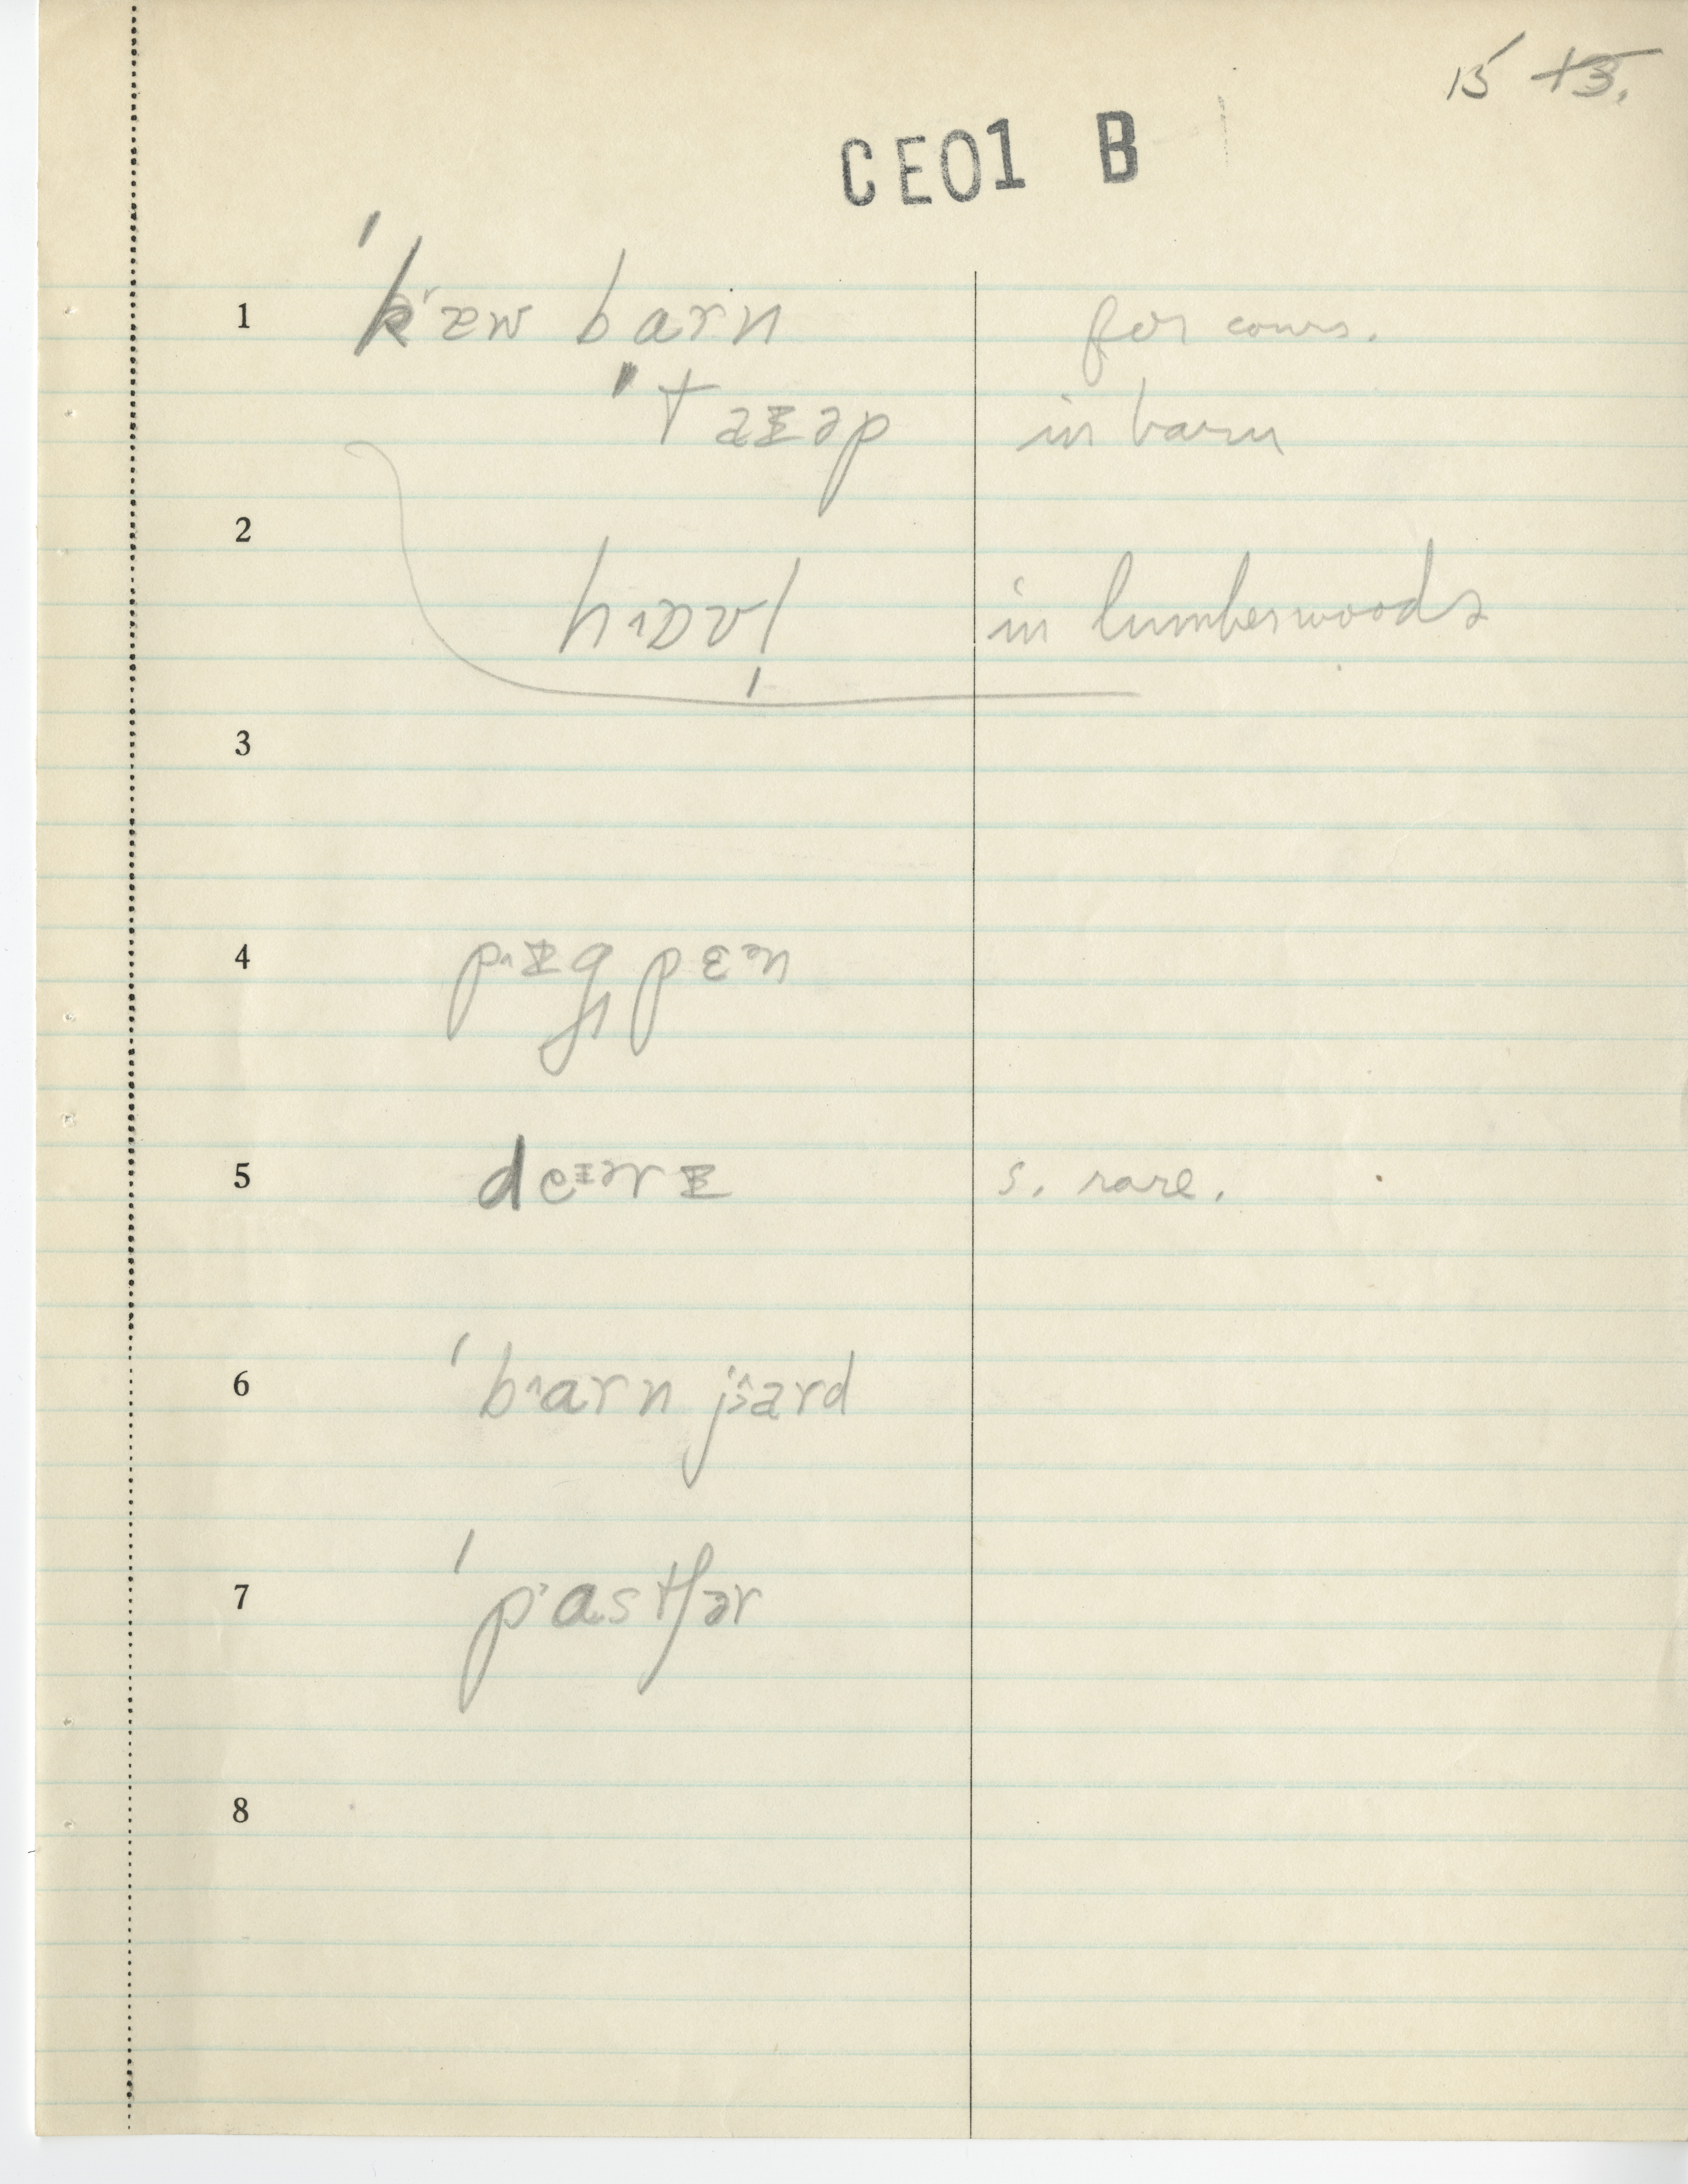 15 13.
CE01 B
1 ˈkʻæw barn for cows.
ˈtaɪəp in barn
2
hɒvl̩ in lumberwoods
3
4 pɪg pɛən
5 deɪərɪ s. rare.
6 ˈbarn jard
7 ˈpʻastʃər
8